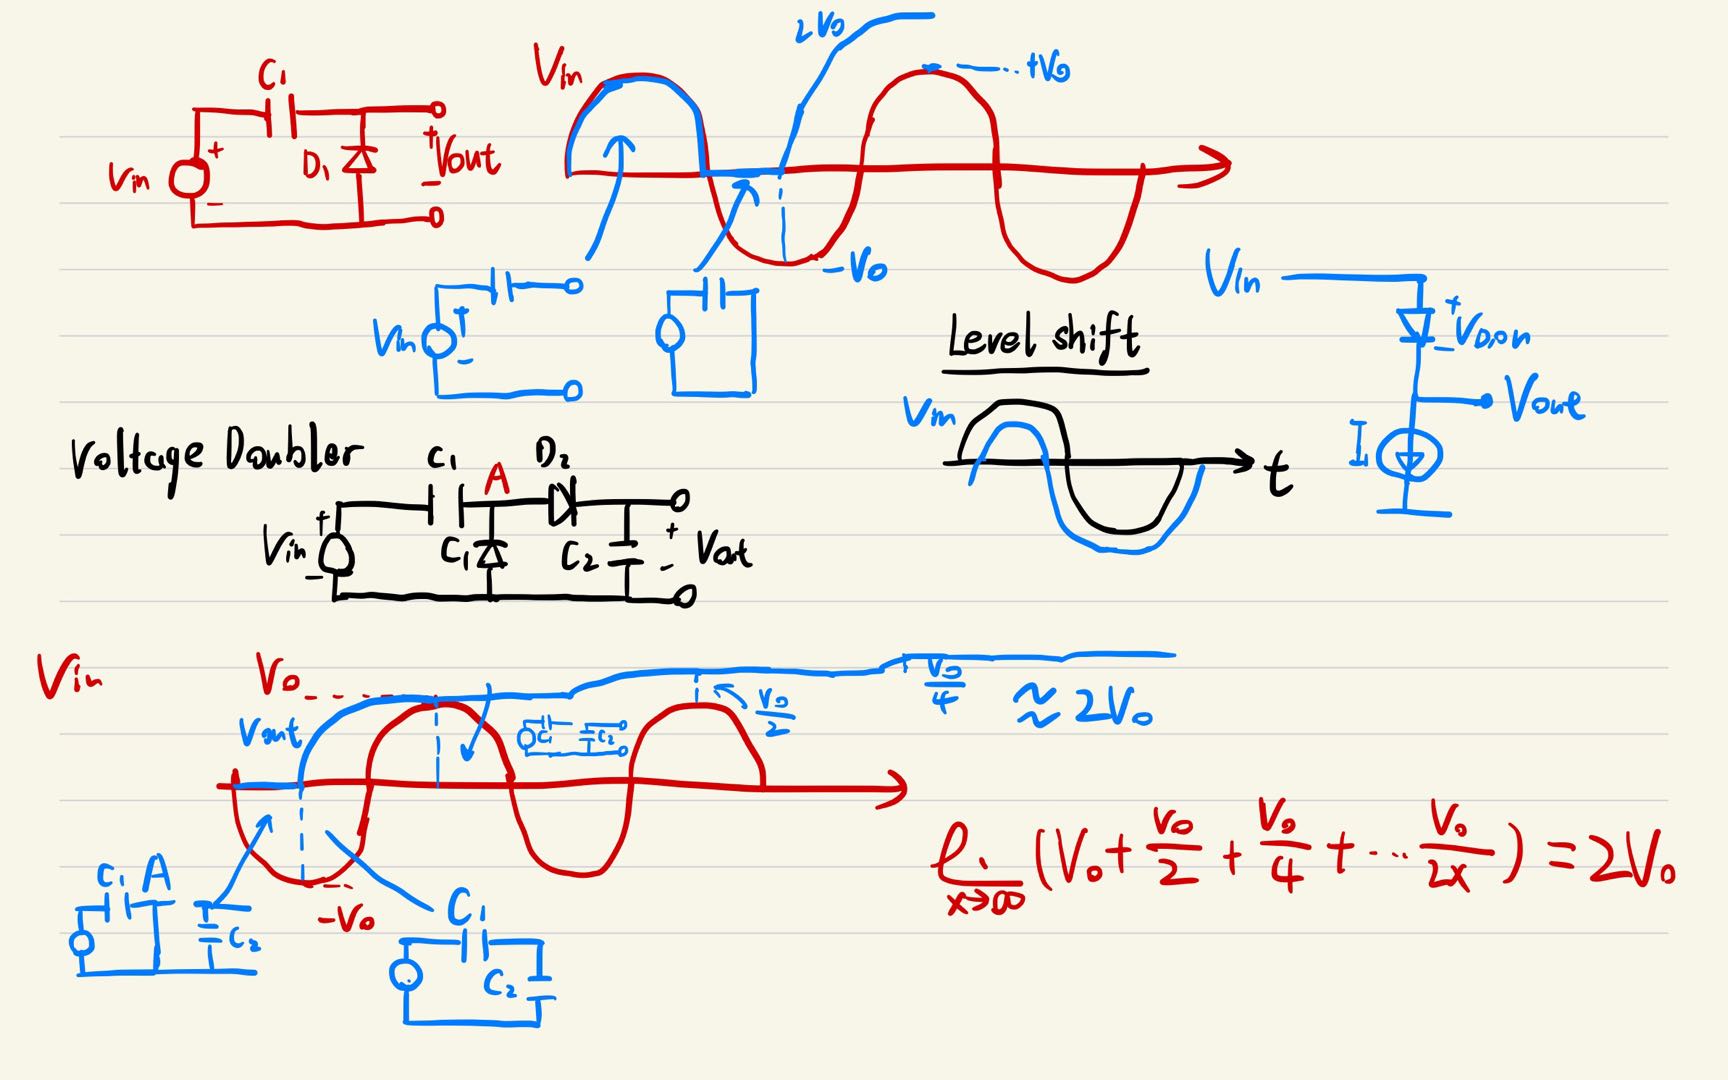 C₁
Vin
+
-
D₁
+
Vout
-
Vin
2V₀
+V₀
-V₀
Vin
+
-
Level shift
Vin
t
Vin
+
VD,on
-
Vout
I
Voltage Doubler
C₁
A
D₂
+
Vin
-
C₁
C₂
+
Vout
-
Vin
V₀
Vout
C₁
C₂
V₀/2
V₀/4
≈ 2V₀
-V₀
C₁
A
C₂
C₁
C₂
ℓi x→∞ (V₀ + V₀/2 + V₀/4 + ... V₀/2x) = 2V₀